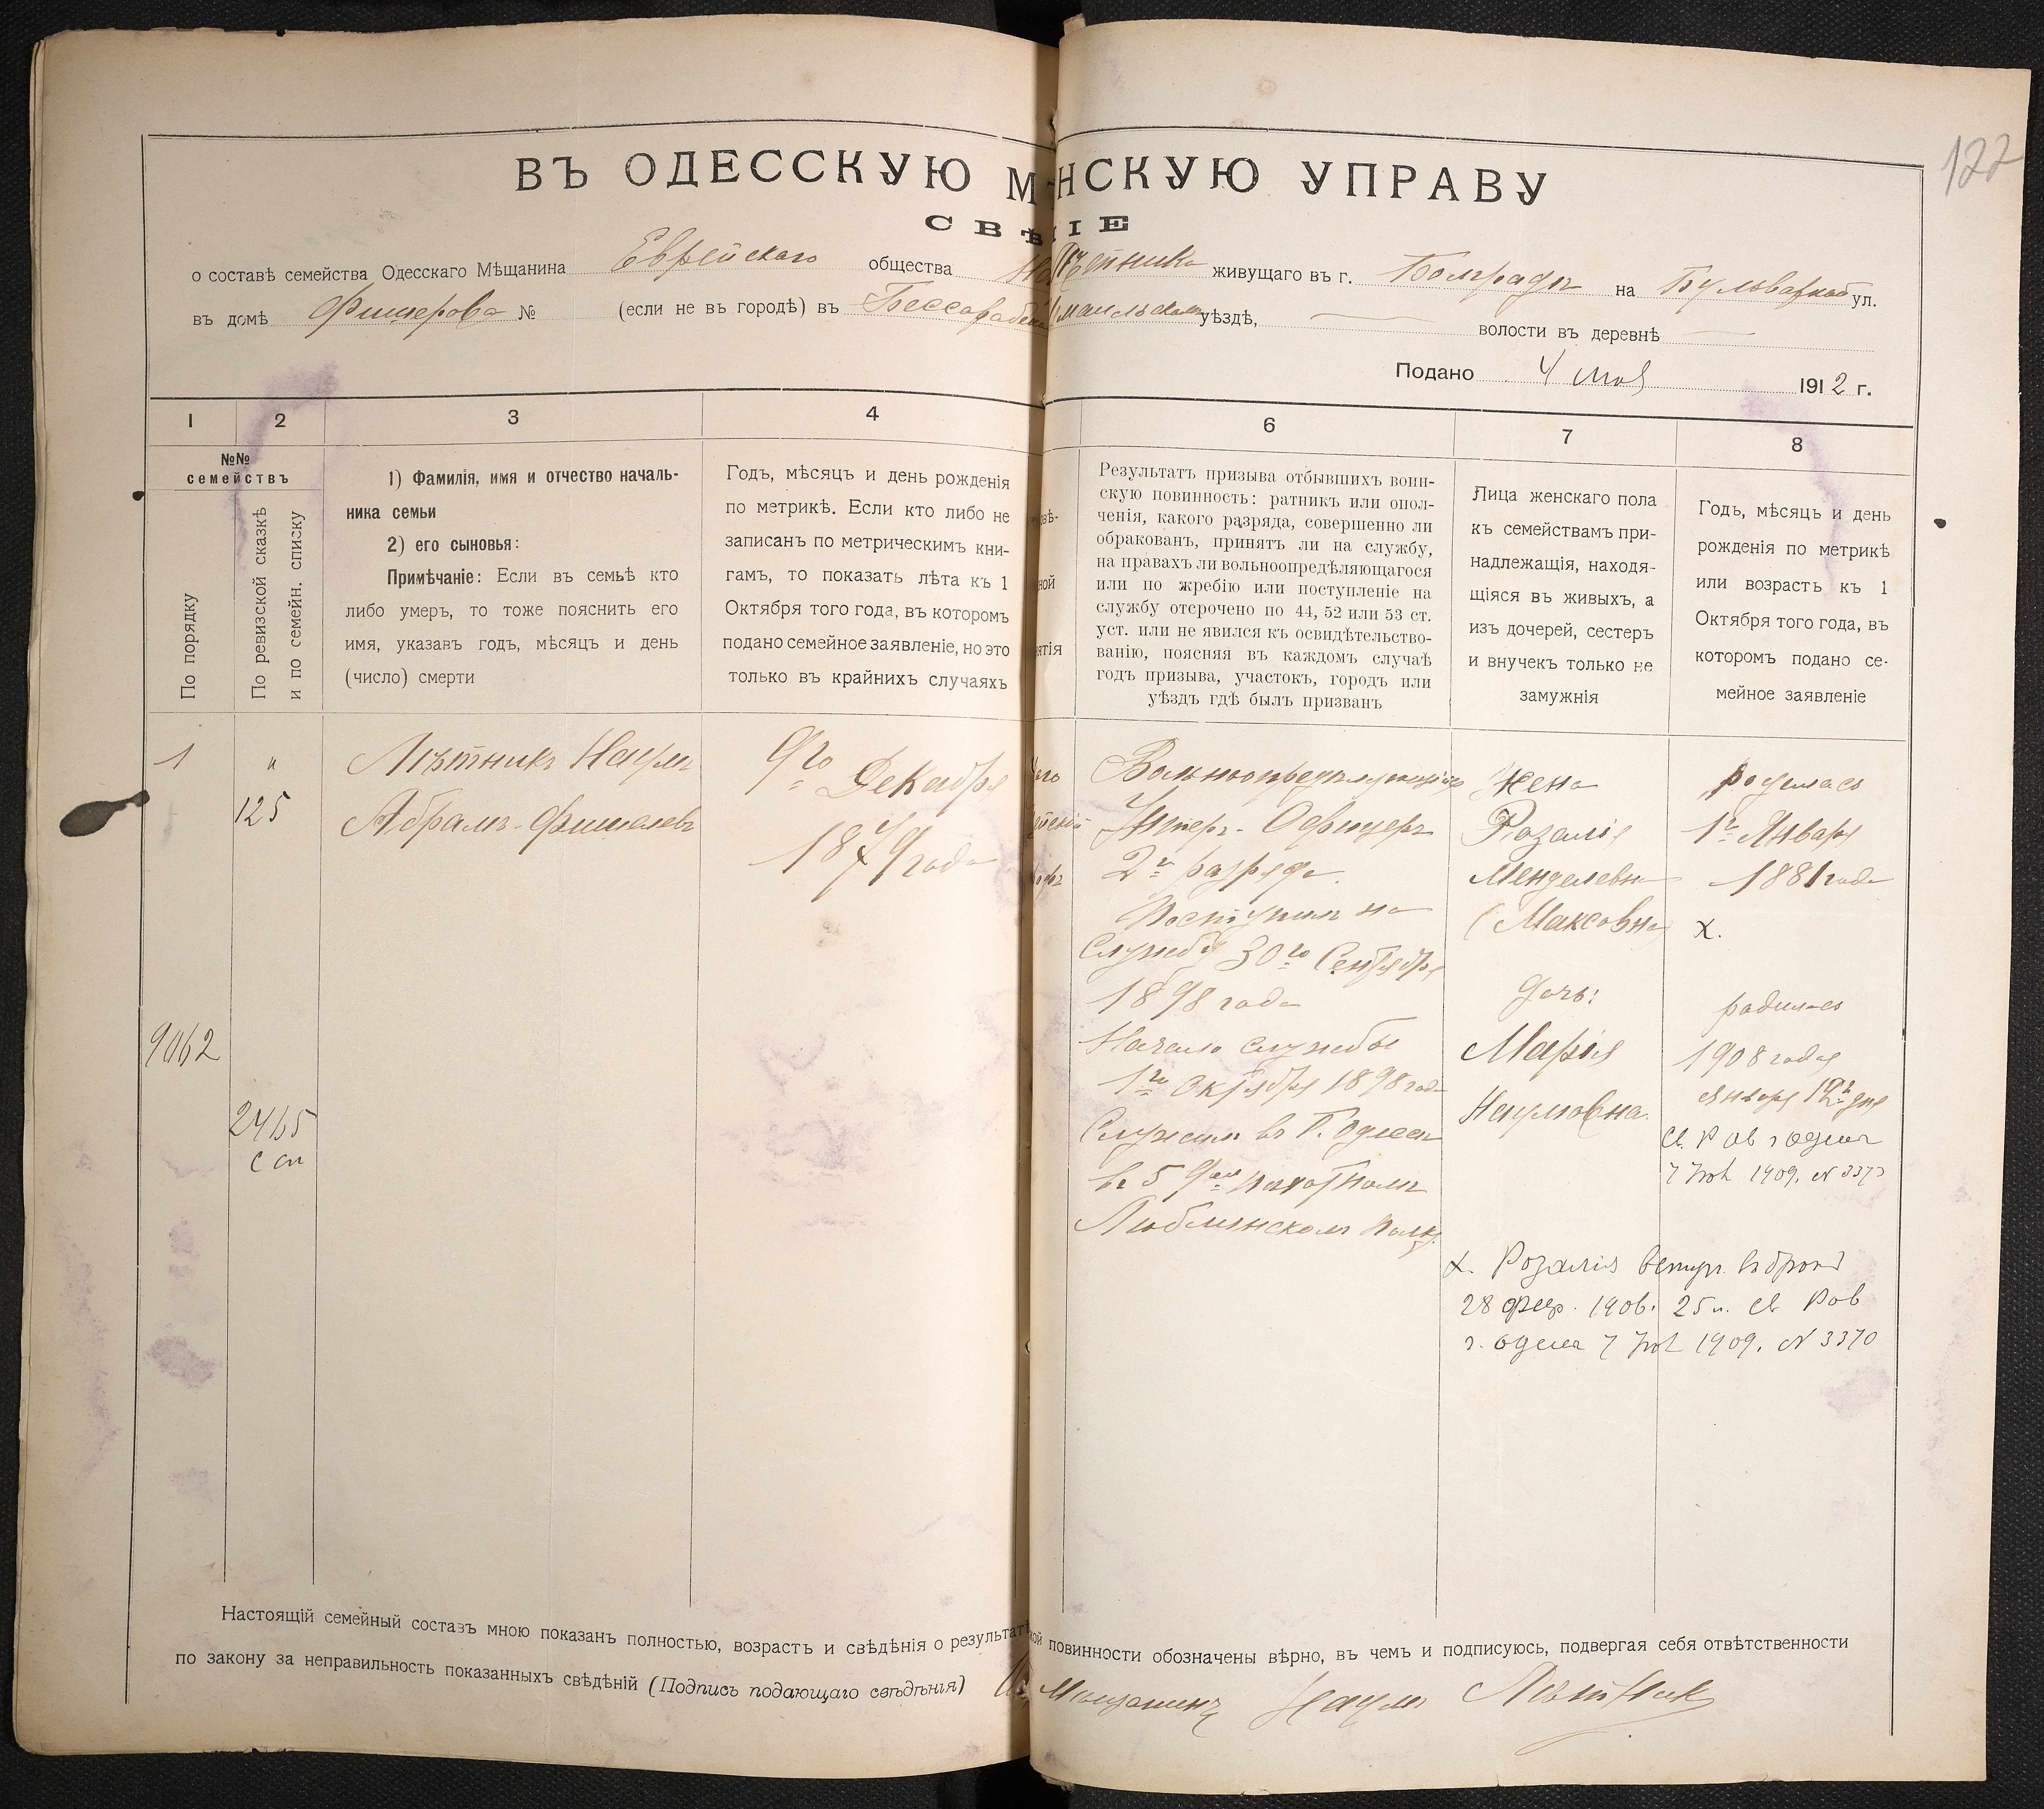 122
ВЪ ОДЕССКУЮ М НСКУЮ УПРАВУ
СВѢ ІЕ
о составѣ семейства Одесскаго Мѣщанина Еврейскаго общества На Лѣтника живущаго въ г. Болградѣ на Бульварной ул.
въ домѣ Фишерова № (если не въ городѣ) въ Бессарабск Измаильскомъ уѣздѣ, — волости въ деревнѣ —
Подано 4 мая 1912 г.
1 2 3 4 6 7 8
№№
семействъ
По порядку
По ревизской сказкѣ
и по семейн. списку
1) Фамилія, имя и отчество началь-
ника семьи
2) его сыновья:
Примѣчаніе: Если въ семьѣ кто
либо умеръ, то тоже пояснить его
имя, указавъ годъ, мѣсяцъ и день
(число) смерти
Годъ, мѣсяцъ и день рожденія
по метрикѣ. Если кто либо не
записанъ по метрическимъ кни-
гамъ, то показать лѣта къ 1
Октября того года, въ которомъ
подано семейное заявленіе, но это
только въ крайнихъ случаяхъ
овѣ-
ной
ятія
Результатъ призыва отбывшихъ воин-
скую повинность: ратникъ или опол-
ченія, какого разряда, совершенно ли
обракованъ, принятъ ли на службу,
на правахъ ли вольноопредѣляющагося
или по жребію или поступленіе на
службу отсрочено по 44, 52 или 53 ст.
уст. или не явился къ освидѣтельство-
ванію, поясняя въ каждомъ случаѣ
годъ призыва, участокъ, городъ или
уѣздъ гдѣ былъ призванъ
Лица женскаго пола
къ семействамъ при-
надлежащія, находя-
щіяся въ живыхъ, а
изъ дочерей, сестеръ
и внучекъ только не
замужнія
Годъ, мѣсяцъ и день
рожденія по метрикѣ
или возрастъ къ 1
Октября того года, въ
которомъ подано се-
мейное заявленіе
1
"
125
9062
2465
с сп
Лѣтникъ Наумъ
Абрамъ-Фишелевъ
9го Декабря
1879 года
Вольноопредѣляющійся
Унтеръ-Офицеръ
2го разряда.
Поступилъ на
Службу 30го Сентября
1898 года
Начало службы
1го Октября 1898 года
Служилъ въ Г. Одессѣ
въ 59мъ пѣхотномъ
Люблинскомъ полку.
Жена
Розалія
Менделевна
(Максовна
дочь:
Марія
Наумовна.
родилась
1го Января
1881 года
х.
родилась
1908 года
января 12го дня
св. Рав г Одессы
1909. N 3373
х. Розалія вступ. въ бракъ
28 февр. 1906. 25 л. св Рав
г. Одессы 1909. N 3370
Настоящій семейный составъ мною показанъ полностью, возрастъ и свѣдѣнія о результатѣ ой повинности обозначены вѣрно, въ чемъ и подписуюсь, подвергая себя отвѣтственности
по закону за неправильность показанныхъ свѣдѣній (Подпись подающаго свѣдѣнія) Мѣщанинъ Наумъ Лѣтникъ